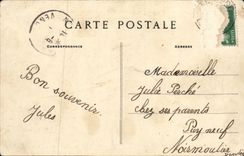 CARTE POSTALE
CORRESPONDANCE
Bon souvenir
Jules
Mademoiselle
Julie Perché
chez ses parents
Puy neuf
Noirmoutier